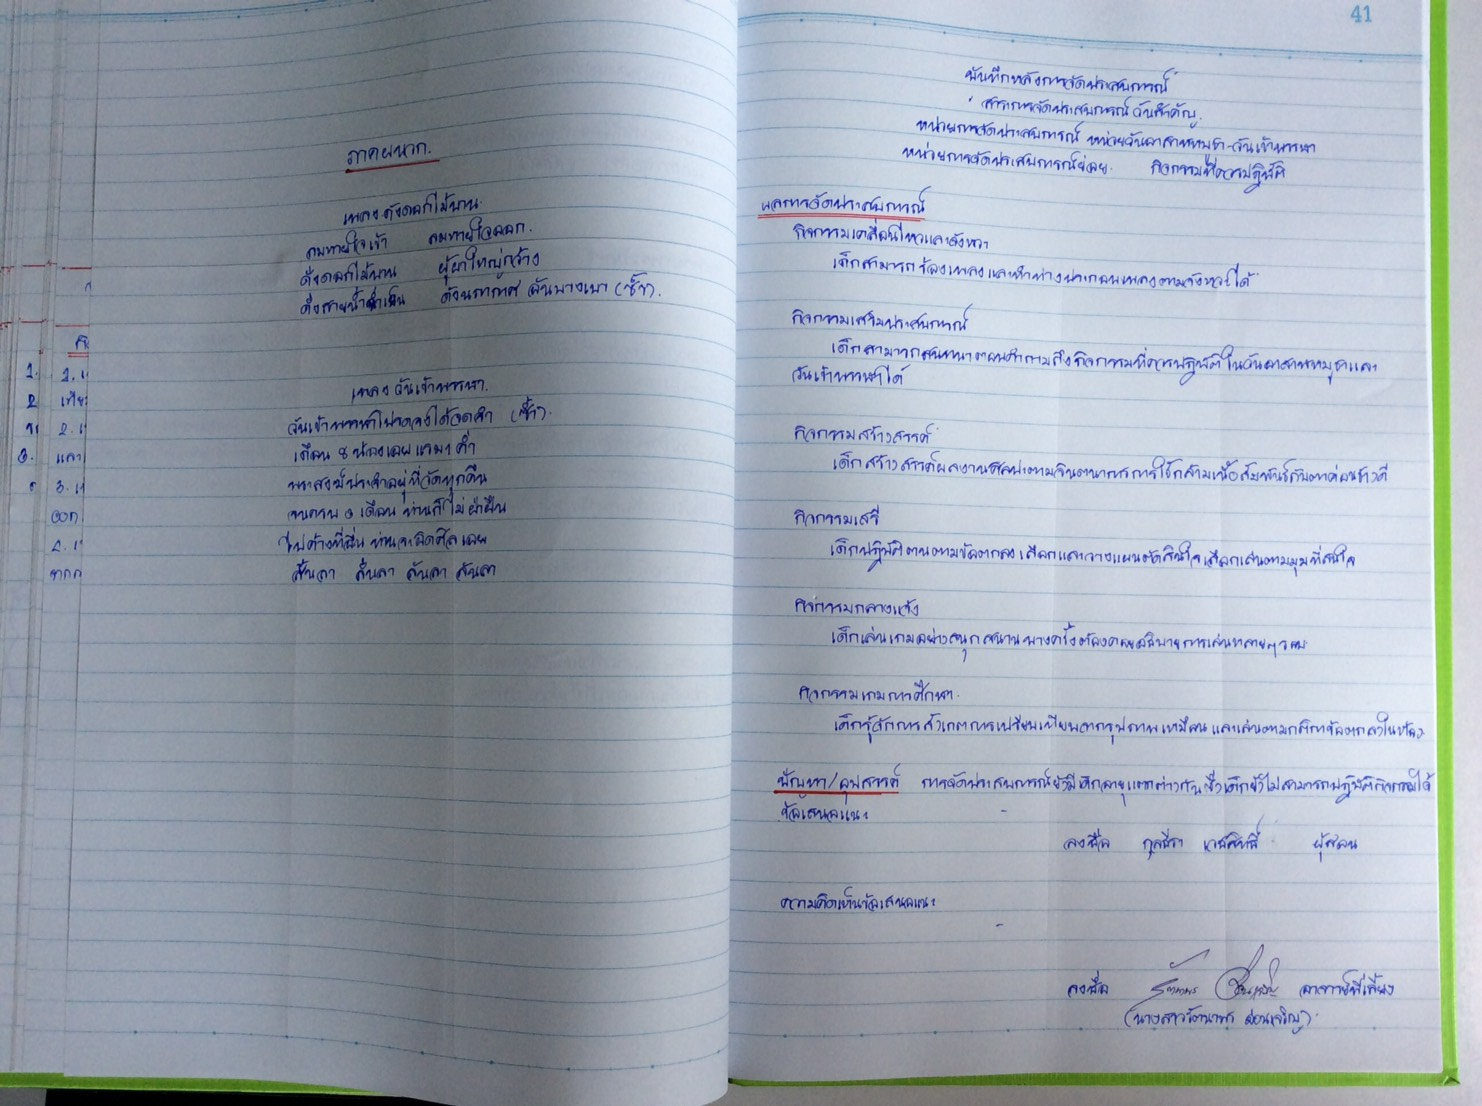 ภาคผนวก.
เพลง ดั่งดอกไม้บาน.
ลมหายใจเข้า ลมหายใจออก.
ดั่งดอกไม้บาน ภูผาใหญ่กว้าง
ดั่งสายน้ำฉ่ำเย็น ดั่งนภากาศ อันบางเบา (ซ้ำ).
เพลง วันเข้าพรรษา.
วันเข้าพรรษาโปรดจงได้จดจำ (ซ้ำ).
เดือน 8 น้องเอย แรม 1 ค่ำ
พระสงฆ์ประจำอยู่ที่วัดทุกคืน
จนครบ 3 เดือน ท่านก็ไม่ฝ่าฝืน
ไปค้างที่อื่น ท่านจะผิดศีลเอย
ลันลา ลันลา ลันลา ลันลา
1.
1.
2
เทีย
2.
3.
และ
3.
ออก
2.
41
บันทึกหลังการจัดประสบการณ์
สาระการจัดประสบการณ์ วันสำคัญ.
หน่วยการจัดประสบการณ์ หน่วยวันอาสาฬหบูชา-วันเข้าพรรษา
หน่วยการจัดประสบการณ์ย่อย. กิจกรรมที่ควรปฏิบัติ
ผลการจัดประสบการณ์
กิจกรรมเคลื่อนไหวและจังหวะ
เด็กสามารถร้องเพลงและทำท่างประกอบเพลงตามจังหวะได้
กิจกรรมเสริมประสบการณ์
เด็กสามารถสนทนาตอบคำถามถึงกิจกรรมที่ควรปฏิบัติในวันอาสาฬหบูชาและ
วันเข้าพรรษาได้
กิจกรรมสร้างสรรค์
เด็กสร้างสรรค์ผลงานศิลปะตามจินตนาการการใช้กล้ามเนื้อสัมพันธ์กับตาค่อนข้างดี
กิจกรรมเสรี
เด็กปฏิบัติตนตามข้อตกลง เลือกและวางแผนตัดสินใจเลือกเล่นตามมุมที่สนใจ
กิจกรรมกลางแจ้ง
เด็กเล่นเกมอย่างสนุกสนานบางครั้งต้องคอยอธิบายการเล่นหลายๆรอบ
กิจกรรมเกมการศึกษา.
เด็กรู้จักการสังเกตการเปรียบเทียบจากรูปภาพเหมือน และเล่นตามกติกาข้อตกลงในห้อง
ปัญหา/อุปสรรค์ การจัดประสบการณ์ยังมีเด็กอายุแตกต่างกัน ซึ่งเด็กยังไม่สามารถปฏิบัติกิจกรรมได้
ข้อเสนอแนะ -
ลงชื่อ กุลธีรา เวชสิทธิ์ ผู้สอน
ความคิดเห็นข้อเสนอแนะ
-
ลงชื่อ อาจารย์พี่เลี้ยง
(นางสาวรัตนาพร อ่อนเจริญ).